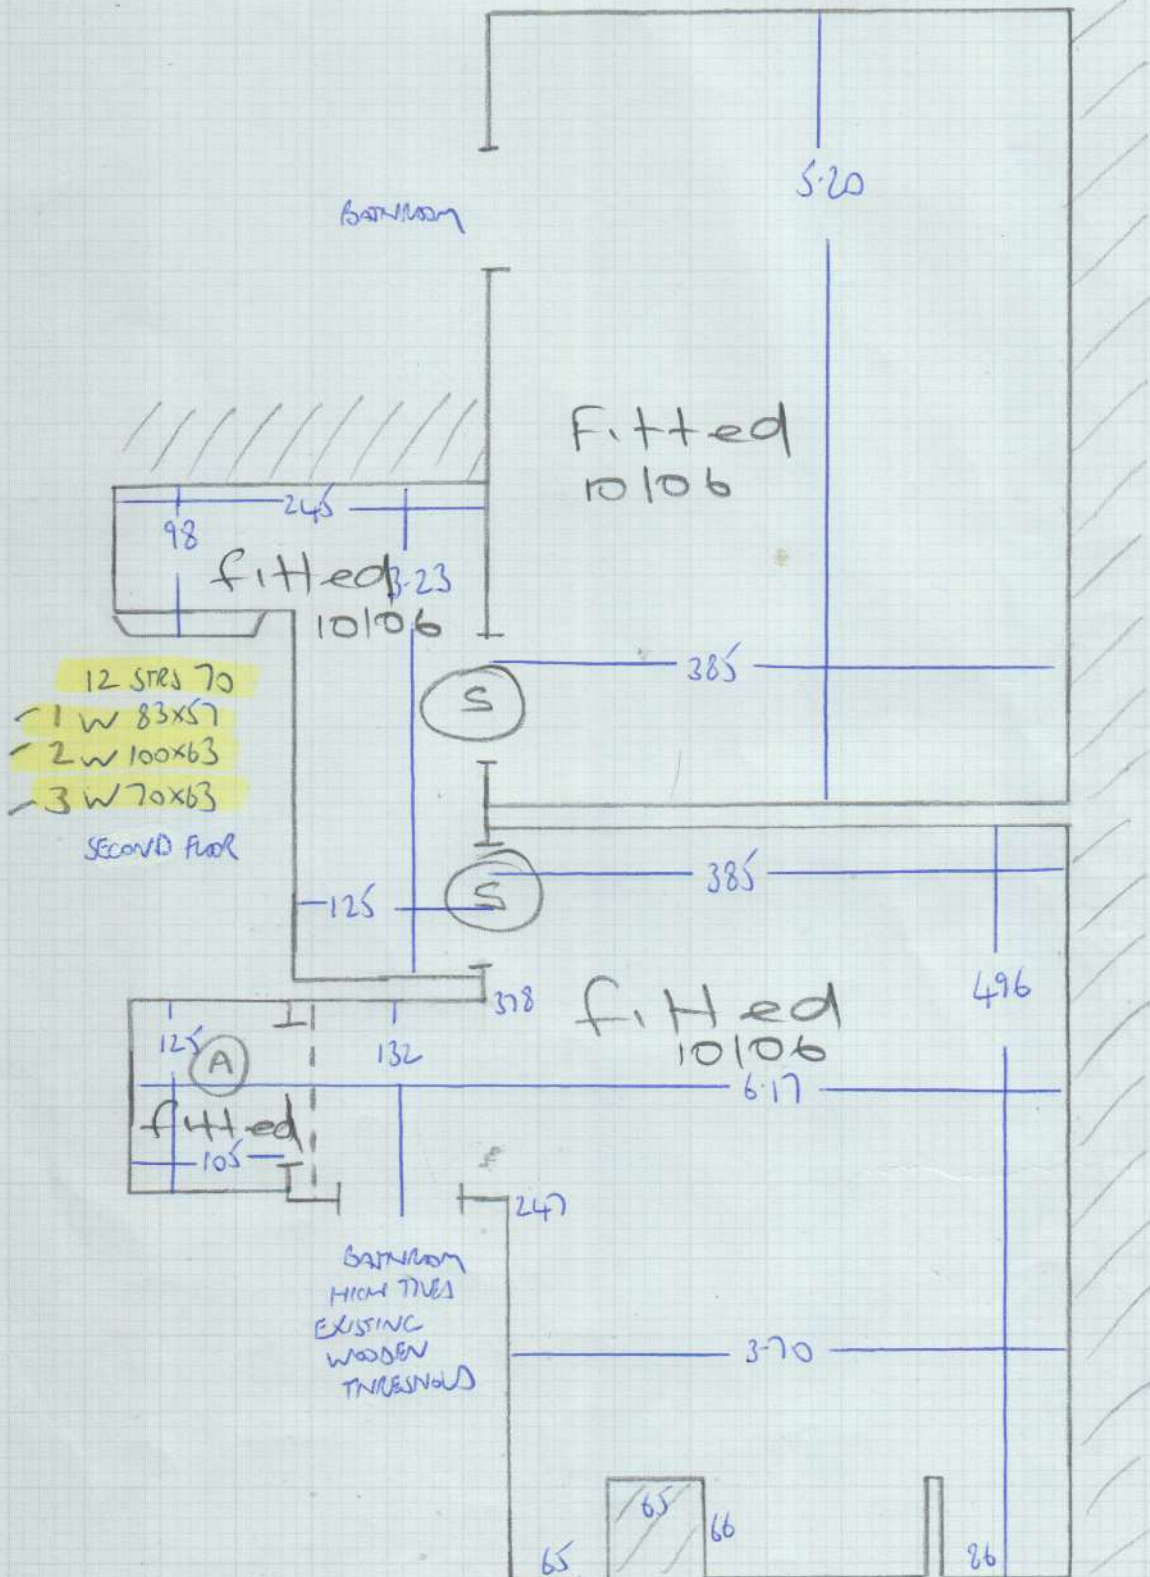 5.20
BATHROOM
Fitted
10/06
245
98
fitted
3.23
10/06
385
12 STRS 70
1 W 83x57
2 W 100x63
3 W 70x63
SECOND FLOOR
S
385
S
125
496
378
fitted
10/06
125
A
132
6.17
fitted
105
247
BATHROOM
HIGH TILES
EXISTING
WOODEN
THRESHOLD
3.70
65
66
65
26